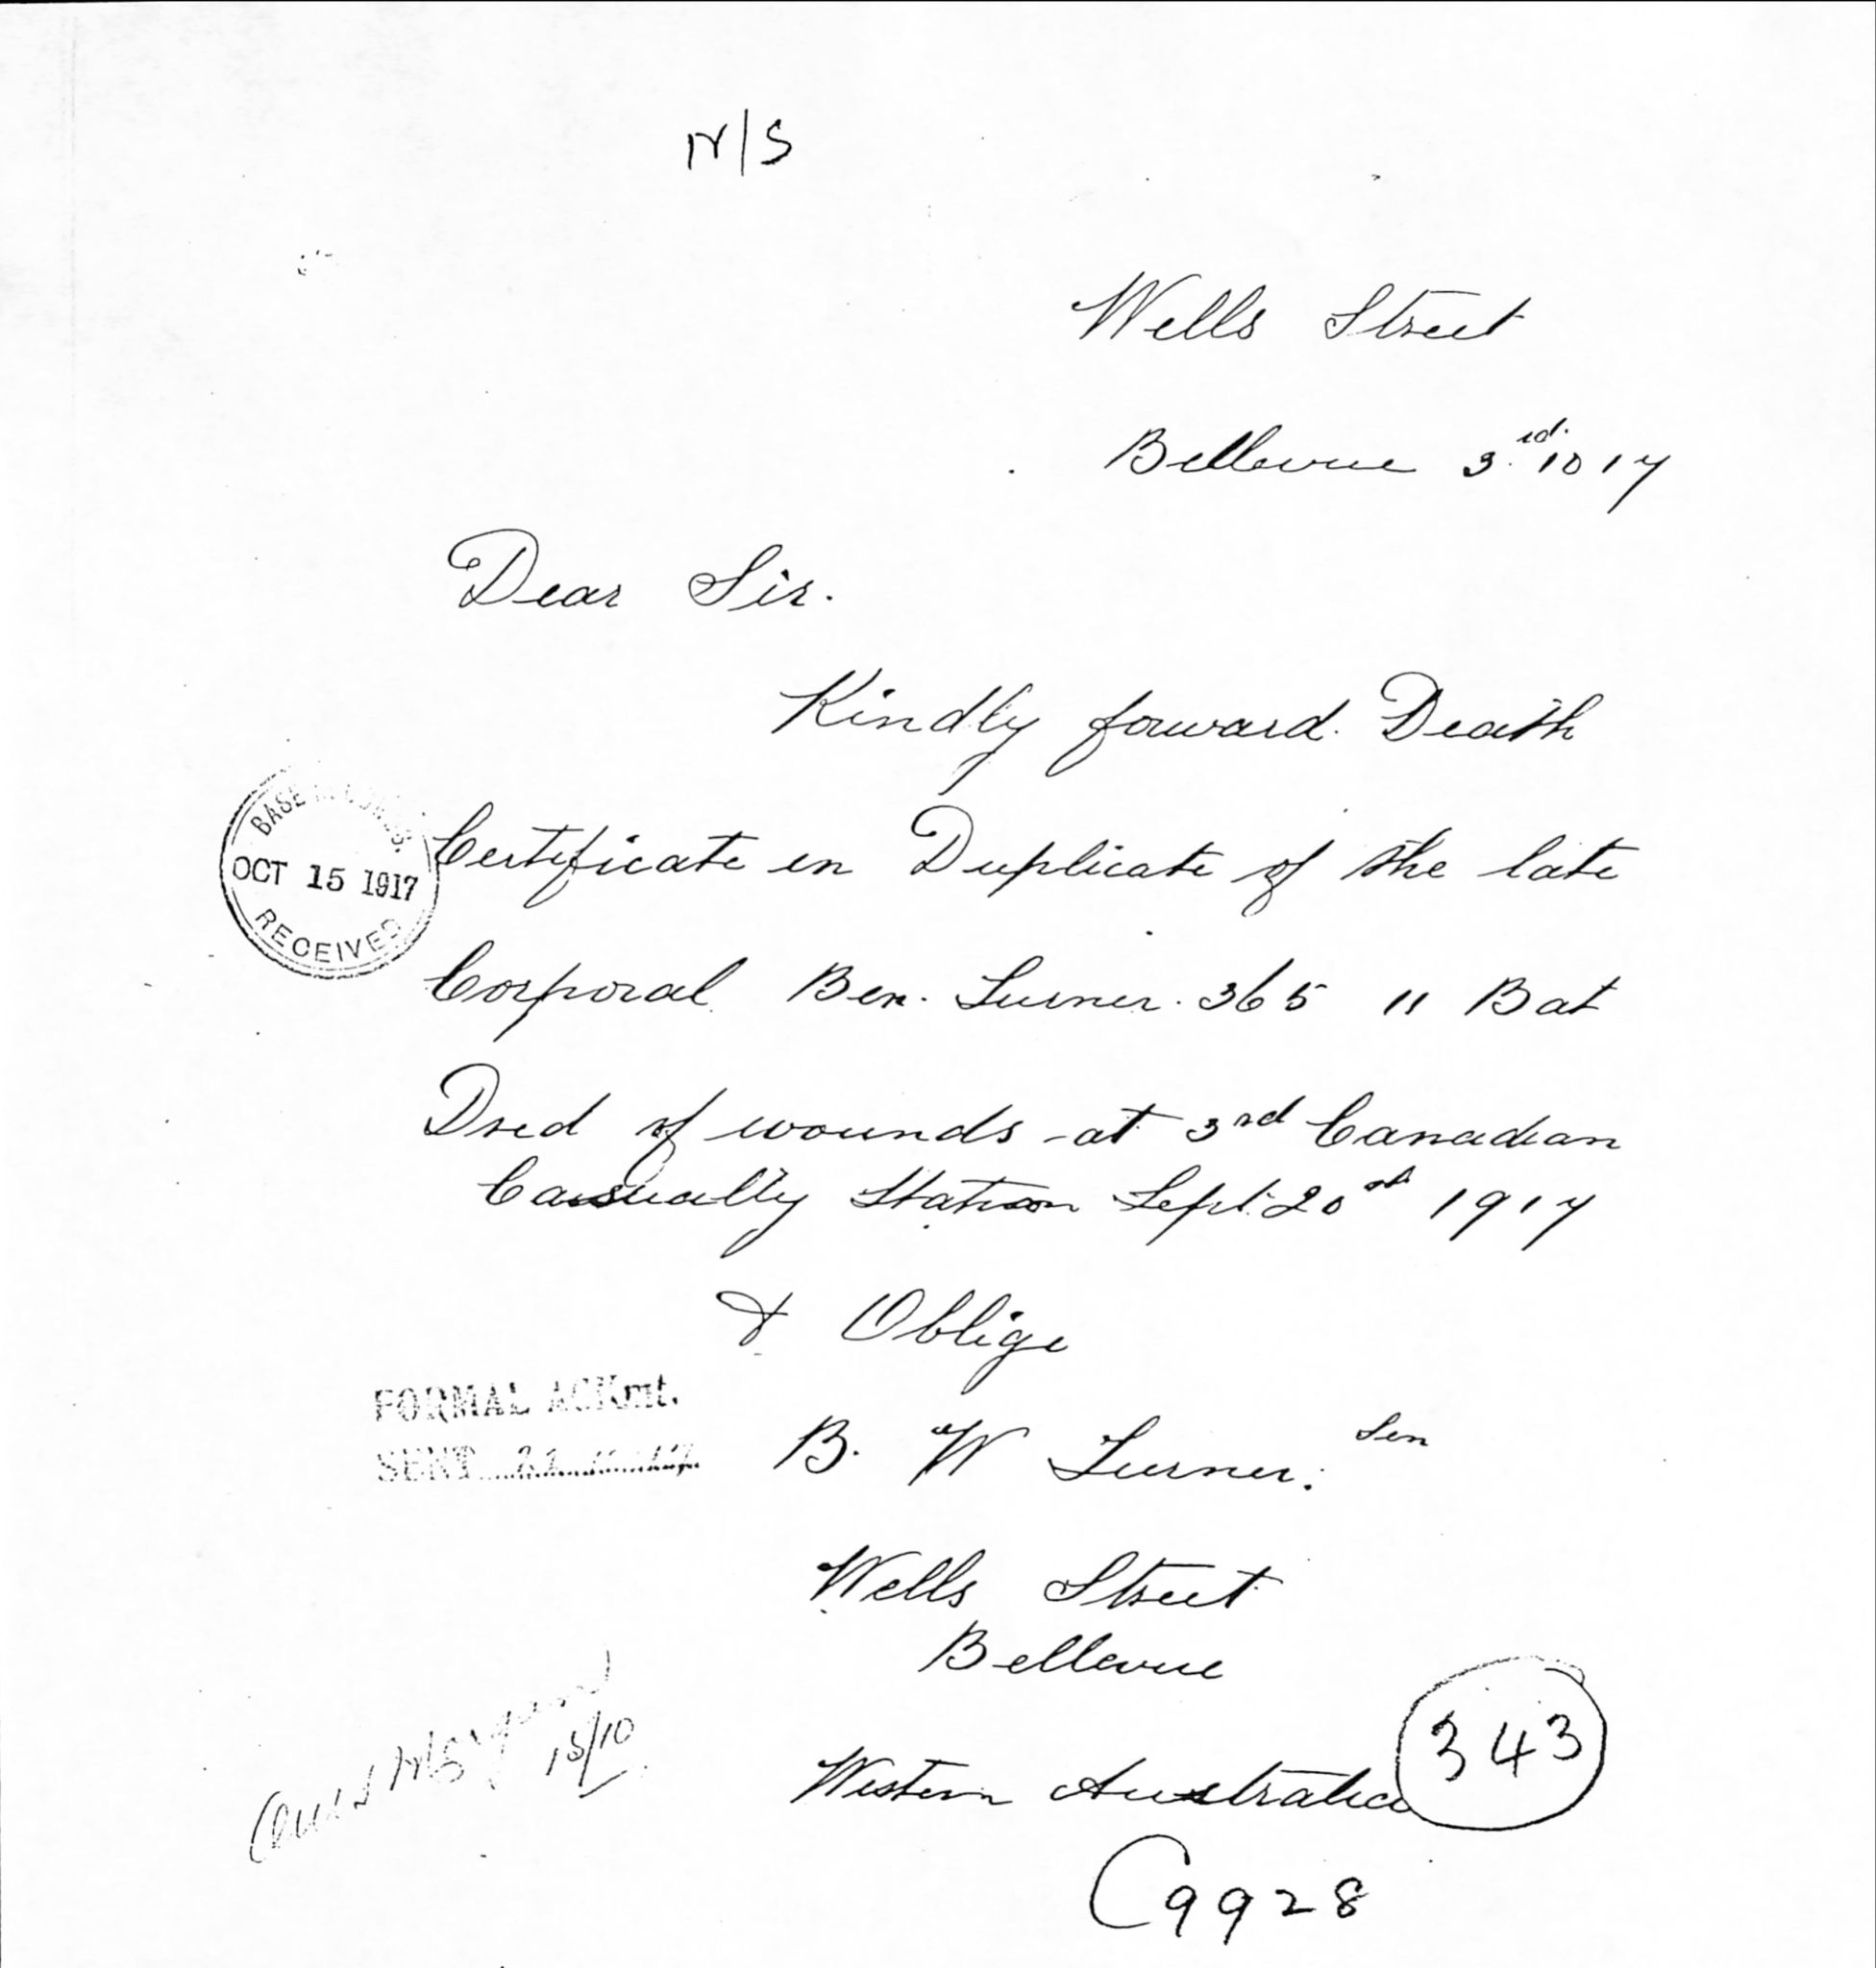 N/S
Wells Street
Bellevue 3rd. 10 17
Dear Sir.
Kindly forward. Death
Certificate in Duplicate of the late
BASE RECORDS.
OCT 15 1917
RECEIVED
Corporal Ben. Turner. 365 11 Bat
Died of wounds at 3rd Canadian
Casually Station Sept. 20th 1917
& Oblige
FORMAL ACKmt.
SENT
B. W Turner. Sen
Wells Street
Bellevue
Western Australia
343
15/10
C9928